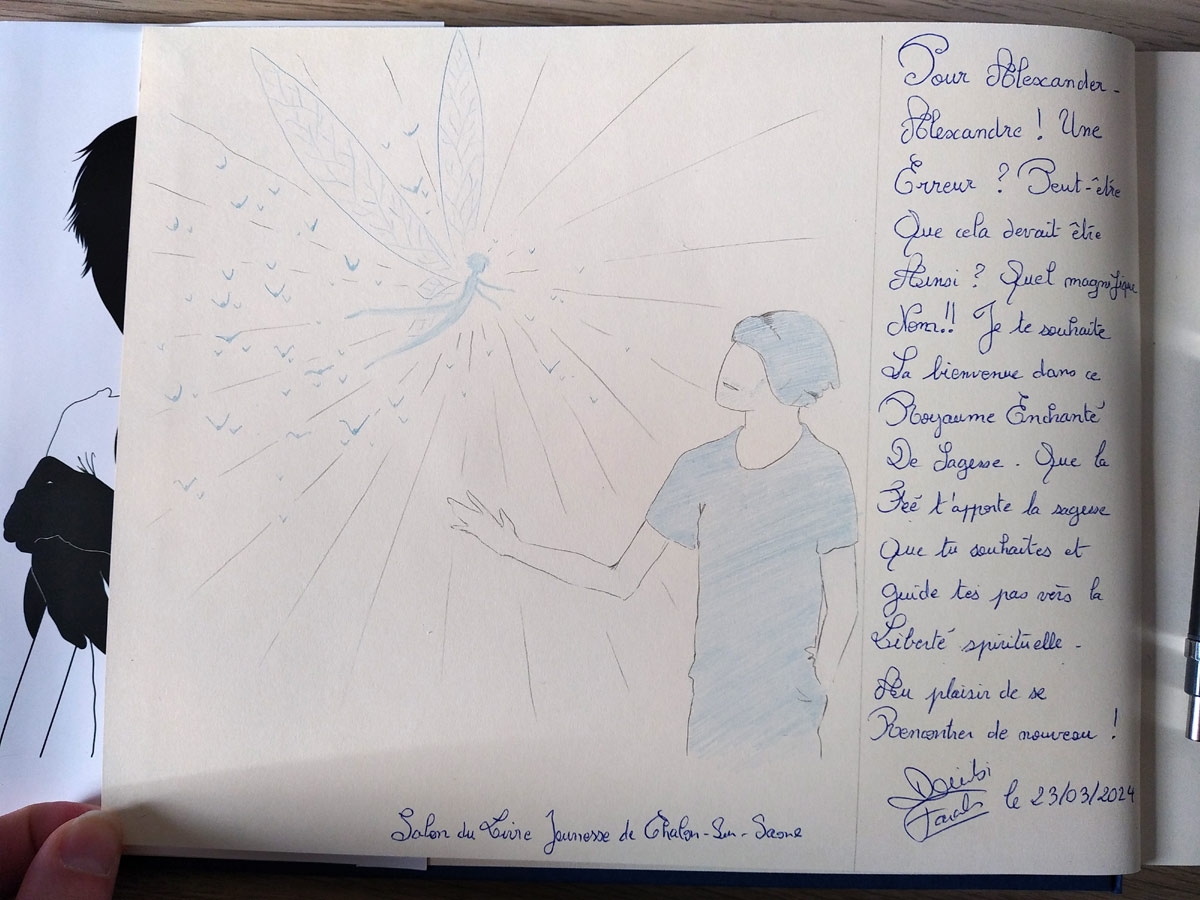 Pour Alexander-
Alexandre ! Une
Erreur ? Peut-être
Que cela devait être
Ainsi ? Quel magnifique
Nom!! Je te souhaite
La bienvenue dans ce
Royaume Enchanté
De Sagesse. Que la
Féé t'apporte la sagesse
Que tu souhaites et
guide tes pas vers la
Liberté spirituelle.
Au plaisir de se
Rencontrer de nouveau !
le 23/03/2024
Salon du Livre Jeunesse de Chalon-Sur-Saone